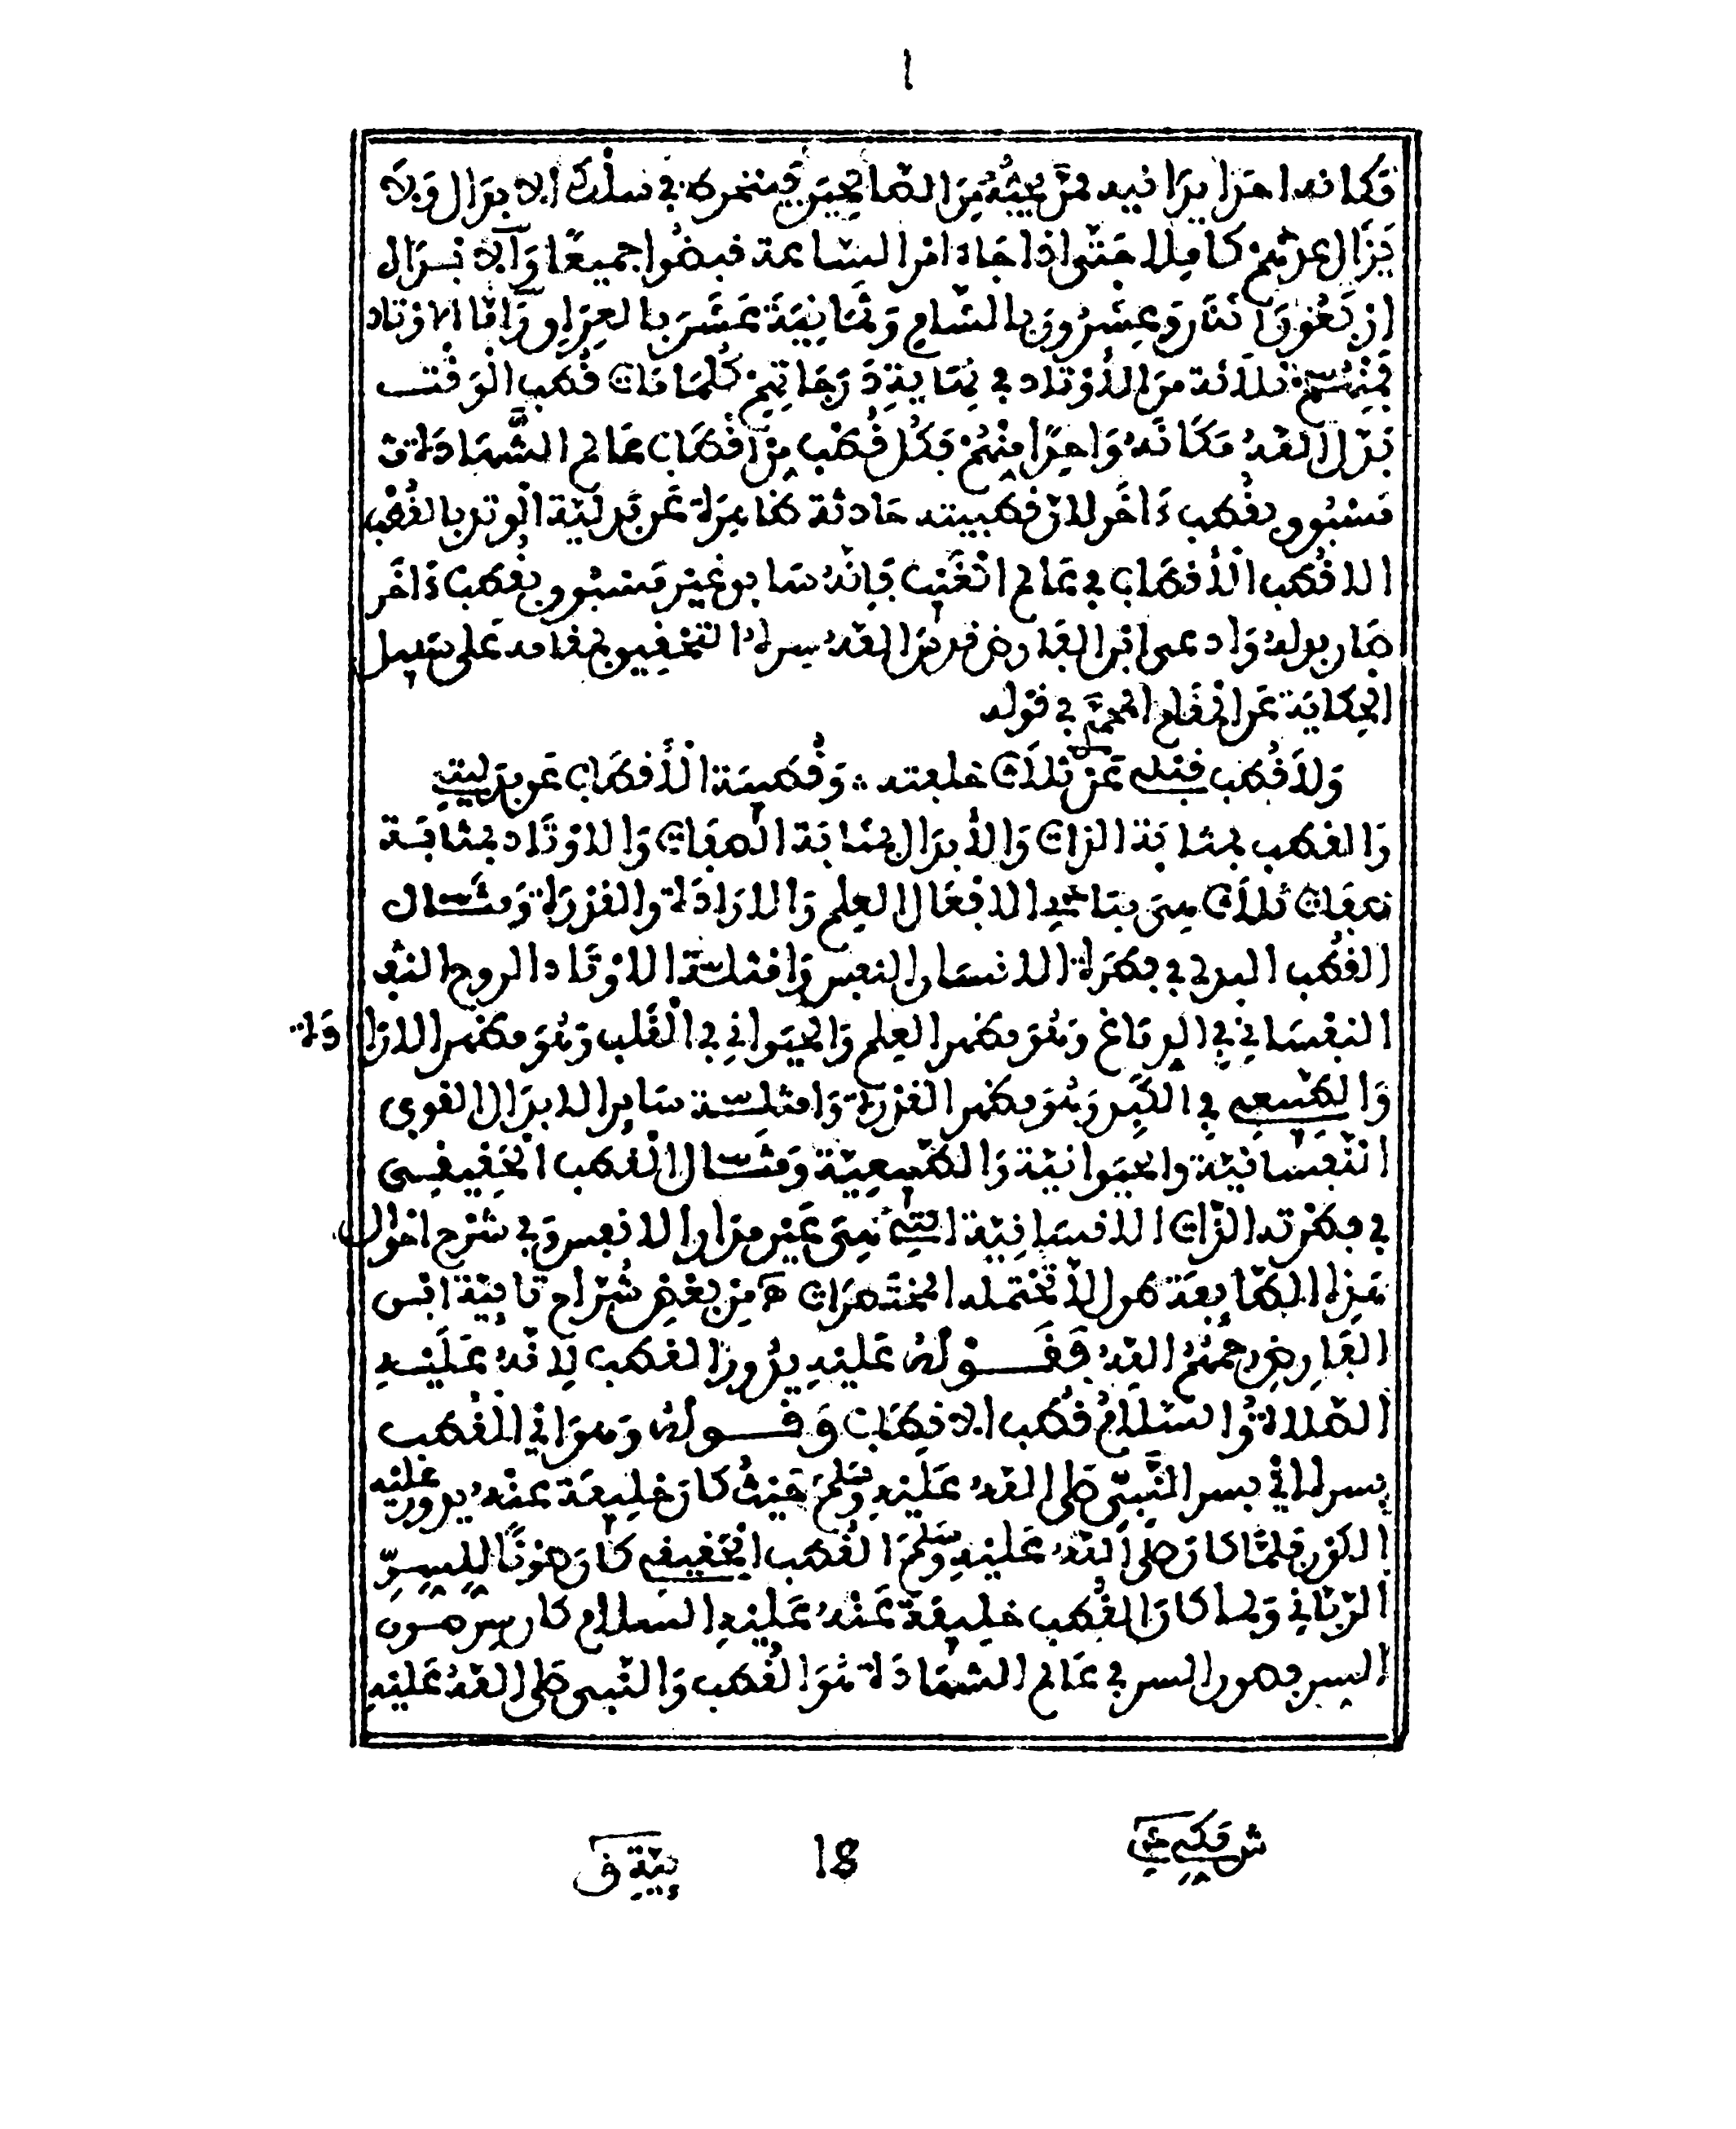 ا
مكانه احدا يدانيه ممن تحته من الصالحين فينخرط في سلك الابدال ولا
يزال عددهم كاملا حتى اذا جاء امر الساعة قبضوا جميعا والابدال
اربعون اثنان وعشرون بالشام وثمانية عشر بالعراق واما الاوتاد
فمنهم ثلاثة من الأوتاد في نهاية درجاتهم كلما مات قطب الوقت
بدل الله مكانه واحدا منهم فكل قطب من أقطاب عالم الشهادة
مسبوق بقطب ءاخر لان قطبيته حادثة ظاهرة عن بدلية الوتر بالقطب
الا قطب الأقطاب في عالم الغيب فإنه سابق غير مسبوق بقطب ءاخر
صار بدله وادعى ابن الفارض قدس الله سره التحقيق بمقامه على سبيل
الحكاية عن المقام المحمدي في قوله
ولا قطب قبلي عن ثلاث خلفته ؞ وقطبية الأقطاب عن بدليتي
والقطب بمثابة الذات والأبدال بمثابة الصفات والاوتاد بمثابة
صفات ثلاث هي مبتدا الافعال العلم والارادة والقدرة ومثال
القطب البدلي في فطرة الانسان النفس وامثلة الاوتاد الروح
النفساني في الدماغ وهو مظهر العلم والحيواني في القلب وهو مظهر الارادة
والطبيعي في الكبد وهو مظهر القدرة وامثلة ساير الابدال القوى
النفسانية والحيوانية والطبيعية ومثال القطب الحقيقي
في فطرته الذات الانسانية التي هي غير مدار الانفس وفي شرح احوال
هذه الطايفة طول لا تحتمله المختصرات هـ من بعض شراح تايية ابن
الفارض رحمه الله فقوله عليه يدور القطب لانه عليه
الصلاة والسلام قطب الاقطاب وقوله وهو اني القطب
بسر لما في بسر النبي صلى الله عليه وسلم حيث كان خليفة عنه يدور عليه
الكون فلما كان صلى الله عليه وسلم القطب الحقيقي كان صونا للسر
الرباني ولما كان القطب خليفة عنه عليه السلام كان سر صون
السر فصون السر في عالم الشهادة هو القطب والنبي صلى الله عليه
18